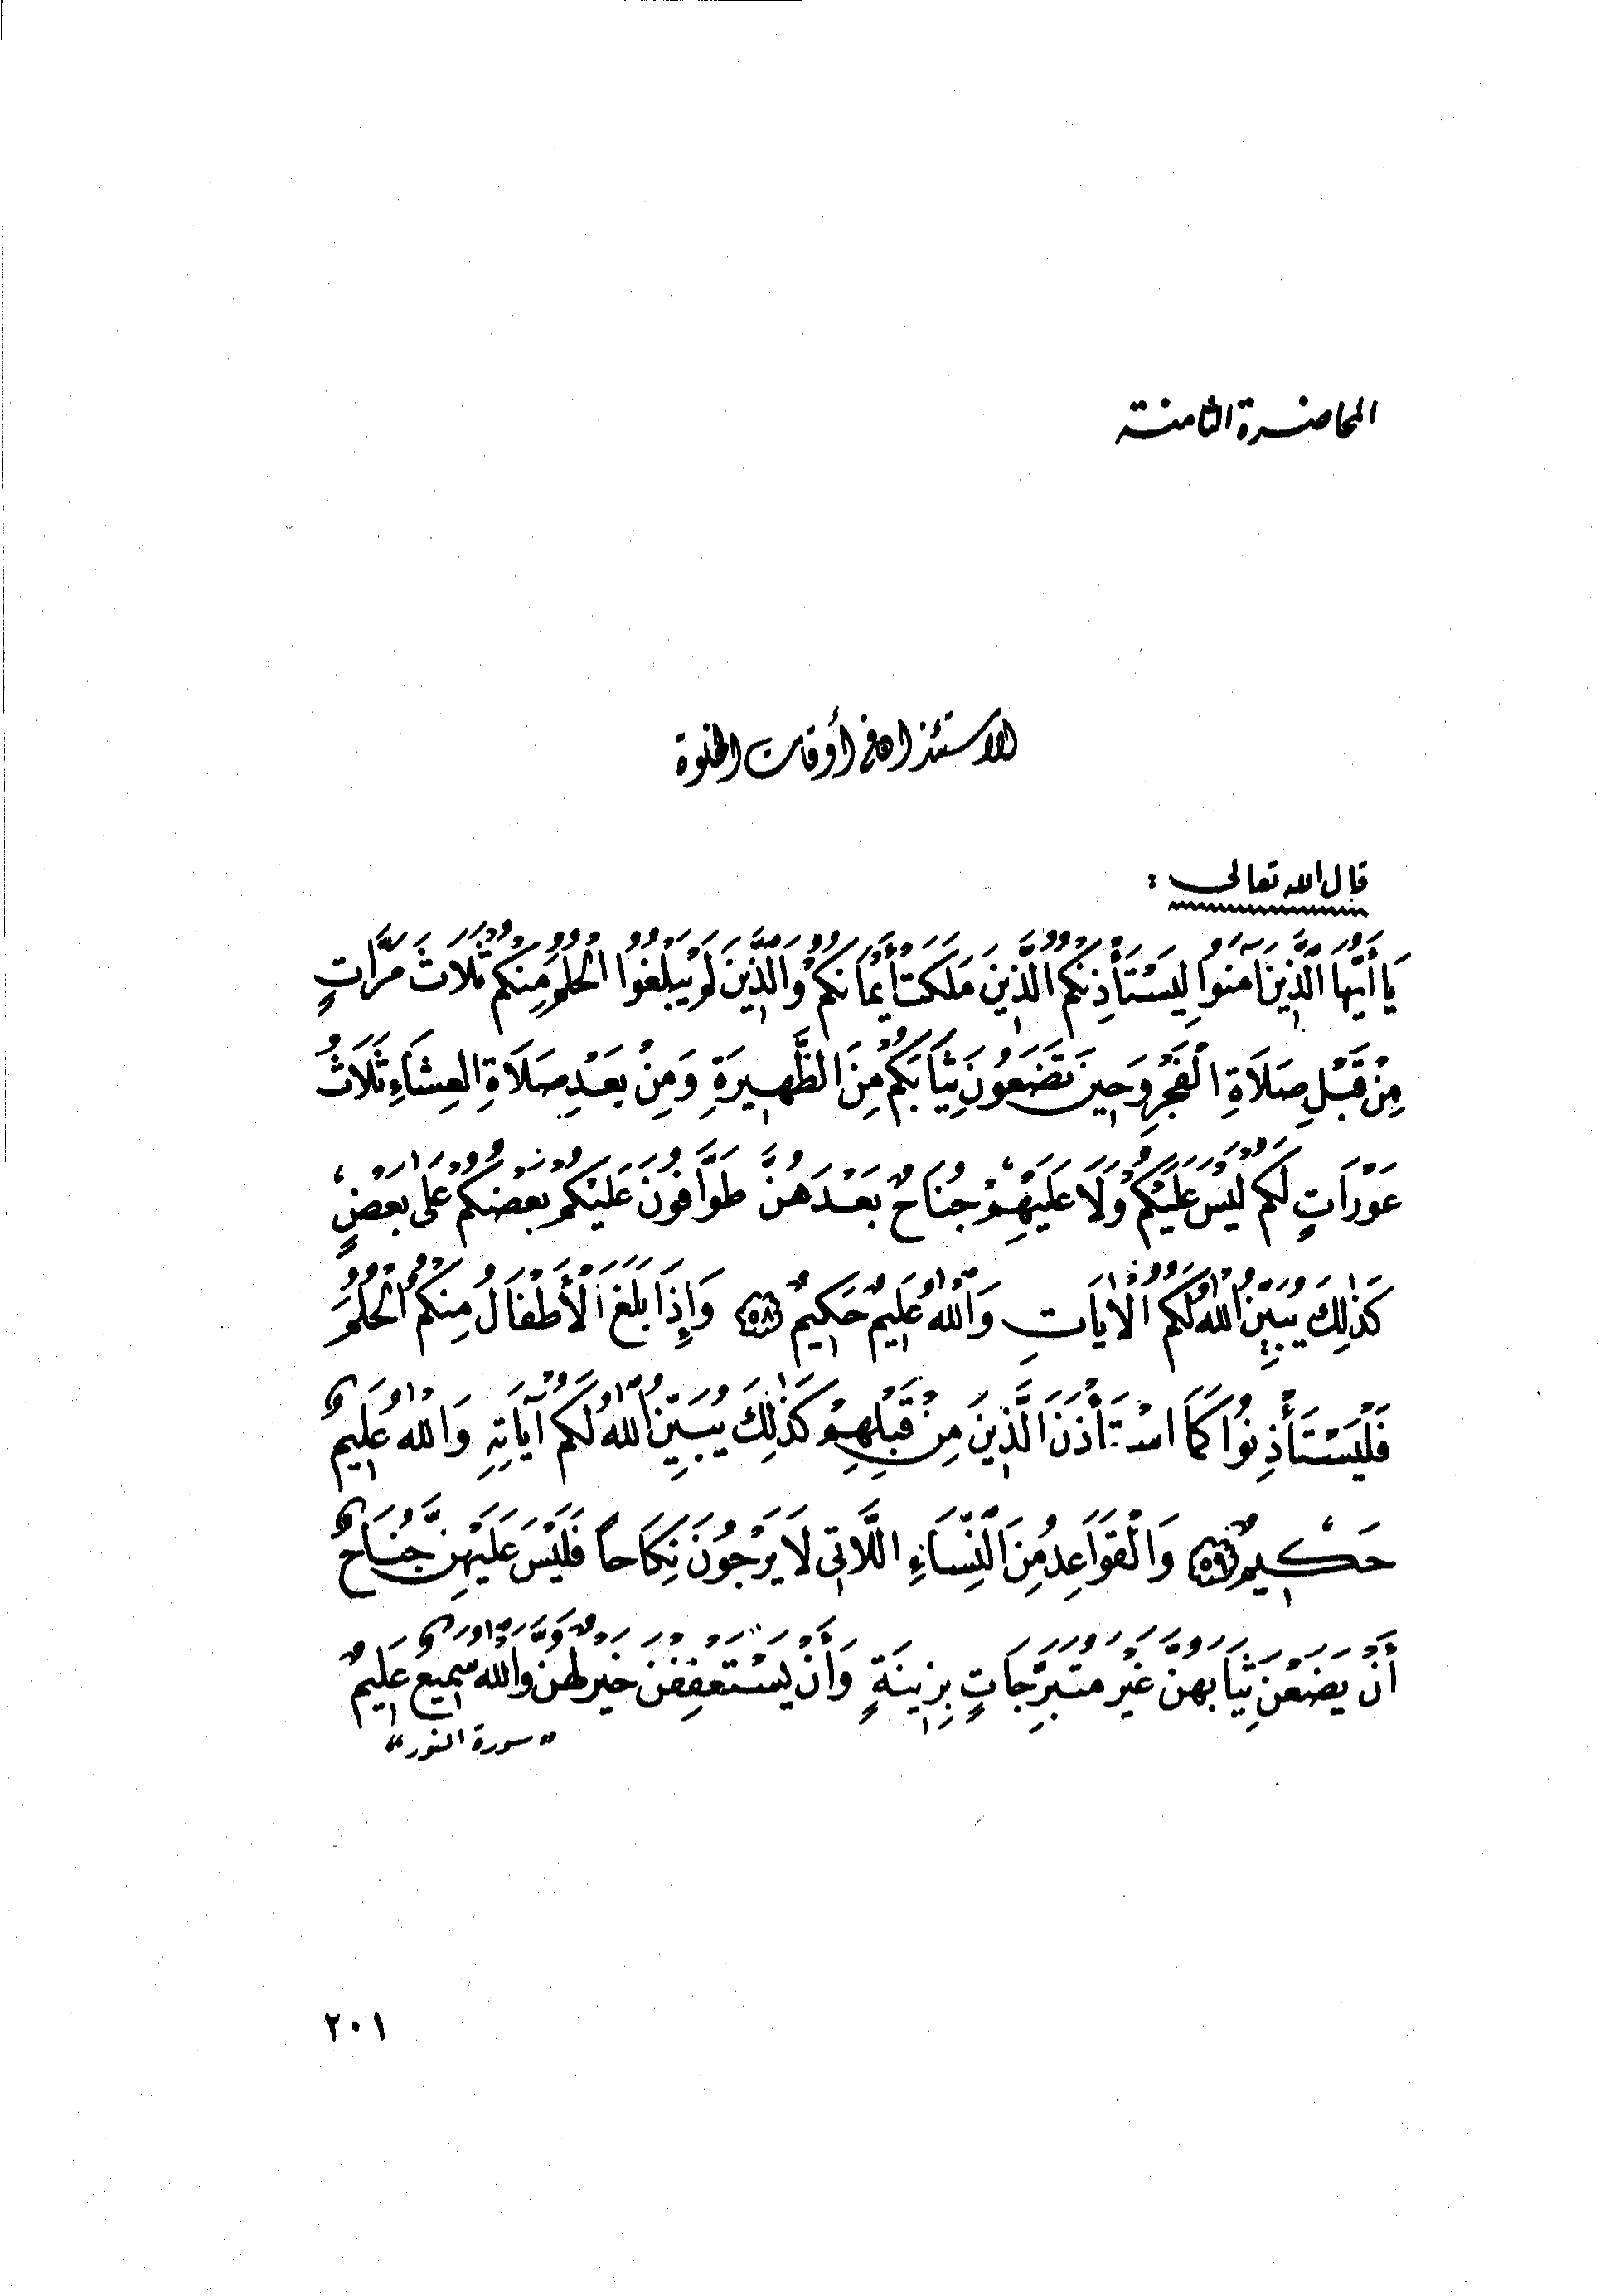 المحاضرة الثامنة
الاستئذان في أوقات الخلوة
قال الله تعالى :
يَا أَيُّهَا الَّذِينَ آمَنُوا لِيَسْتَأْذِنكُمُ الَّذِينَ مَلَكَتْ أَيْمَانُكُمْ وَالَّذِينَ لَمْ يَبْلُغُوا الْحُلُمَ مِنكُمْ ثَلَاثَ مَرَّاتٍ
مِنْ قَبْلِ صَلَاةِ الْفَجْرِ وَحِينَ تَضَعُونَ ثِيَابَكُمْ مِنَ الظَّهِيرَةِ وَمِنْ بَعْدِ صَلَاةِ العِشَاءِ ثَلَاثُ
عَوْرَاتٍ لَكُمْ لَيْسَ عَلَيْكُمْ وَلَا عَلَيْهِمْ جُنَاحٌ بَعْدَهُنَّ طَوَّافُونَ عَلَيْكُمْ بَعْضُكُمْ عَلَى بَعْضٍ
كَذٰلِكَ يُبَيِّنُ اللهُ لَكُمُ الْآيَاتِ وَاللهُ عَلِيمٌ حَكِيمٌ ٥٨ وَإِذَا بَلَغَ الْأَطْفَالُ مِنكُمُ الْحُلُمَ
فَلْيَسْتَأْذِنُوا كَمَا اسْتَأْذَنَ الَّذِينَ مِنْ قَبْلِهِمْ كَذٰلِكَ يُبَيِّنُ اللهُ لَكُمْ آيَاتِهِ وَاللهُ عَلِيمٌ
حَكِيمٌ ٥٩ وَالْقَوَاعِدُ مِنَ النِّسَاءِ اللَّاتِي لَا يَرْجُونَ نِكَاحاً فَلَيْسَ عَلَيْهِنَّ جُنَاحٌ
أَنْ يَضَعْنَ ثِيَابَهُنَّ غَيْرَ مُتَبَرِّجَاتٍ بِزِينَةٍ وَأَنْ يَسْتَعْفِفْنَ خَيْرٌ لَهُنَّ وَاللهُ سَمِيعٌ عَلِيمٌ
"سورة النور"
٢٠١